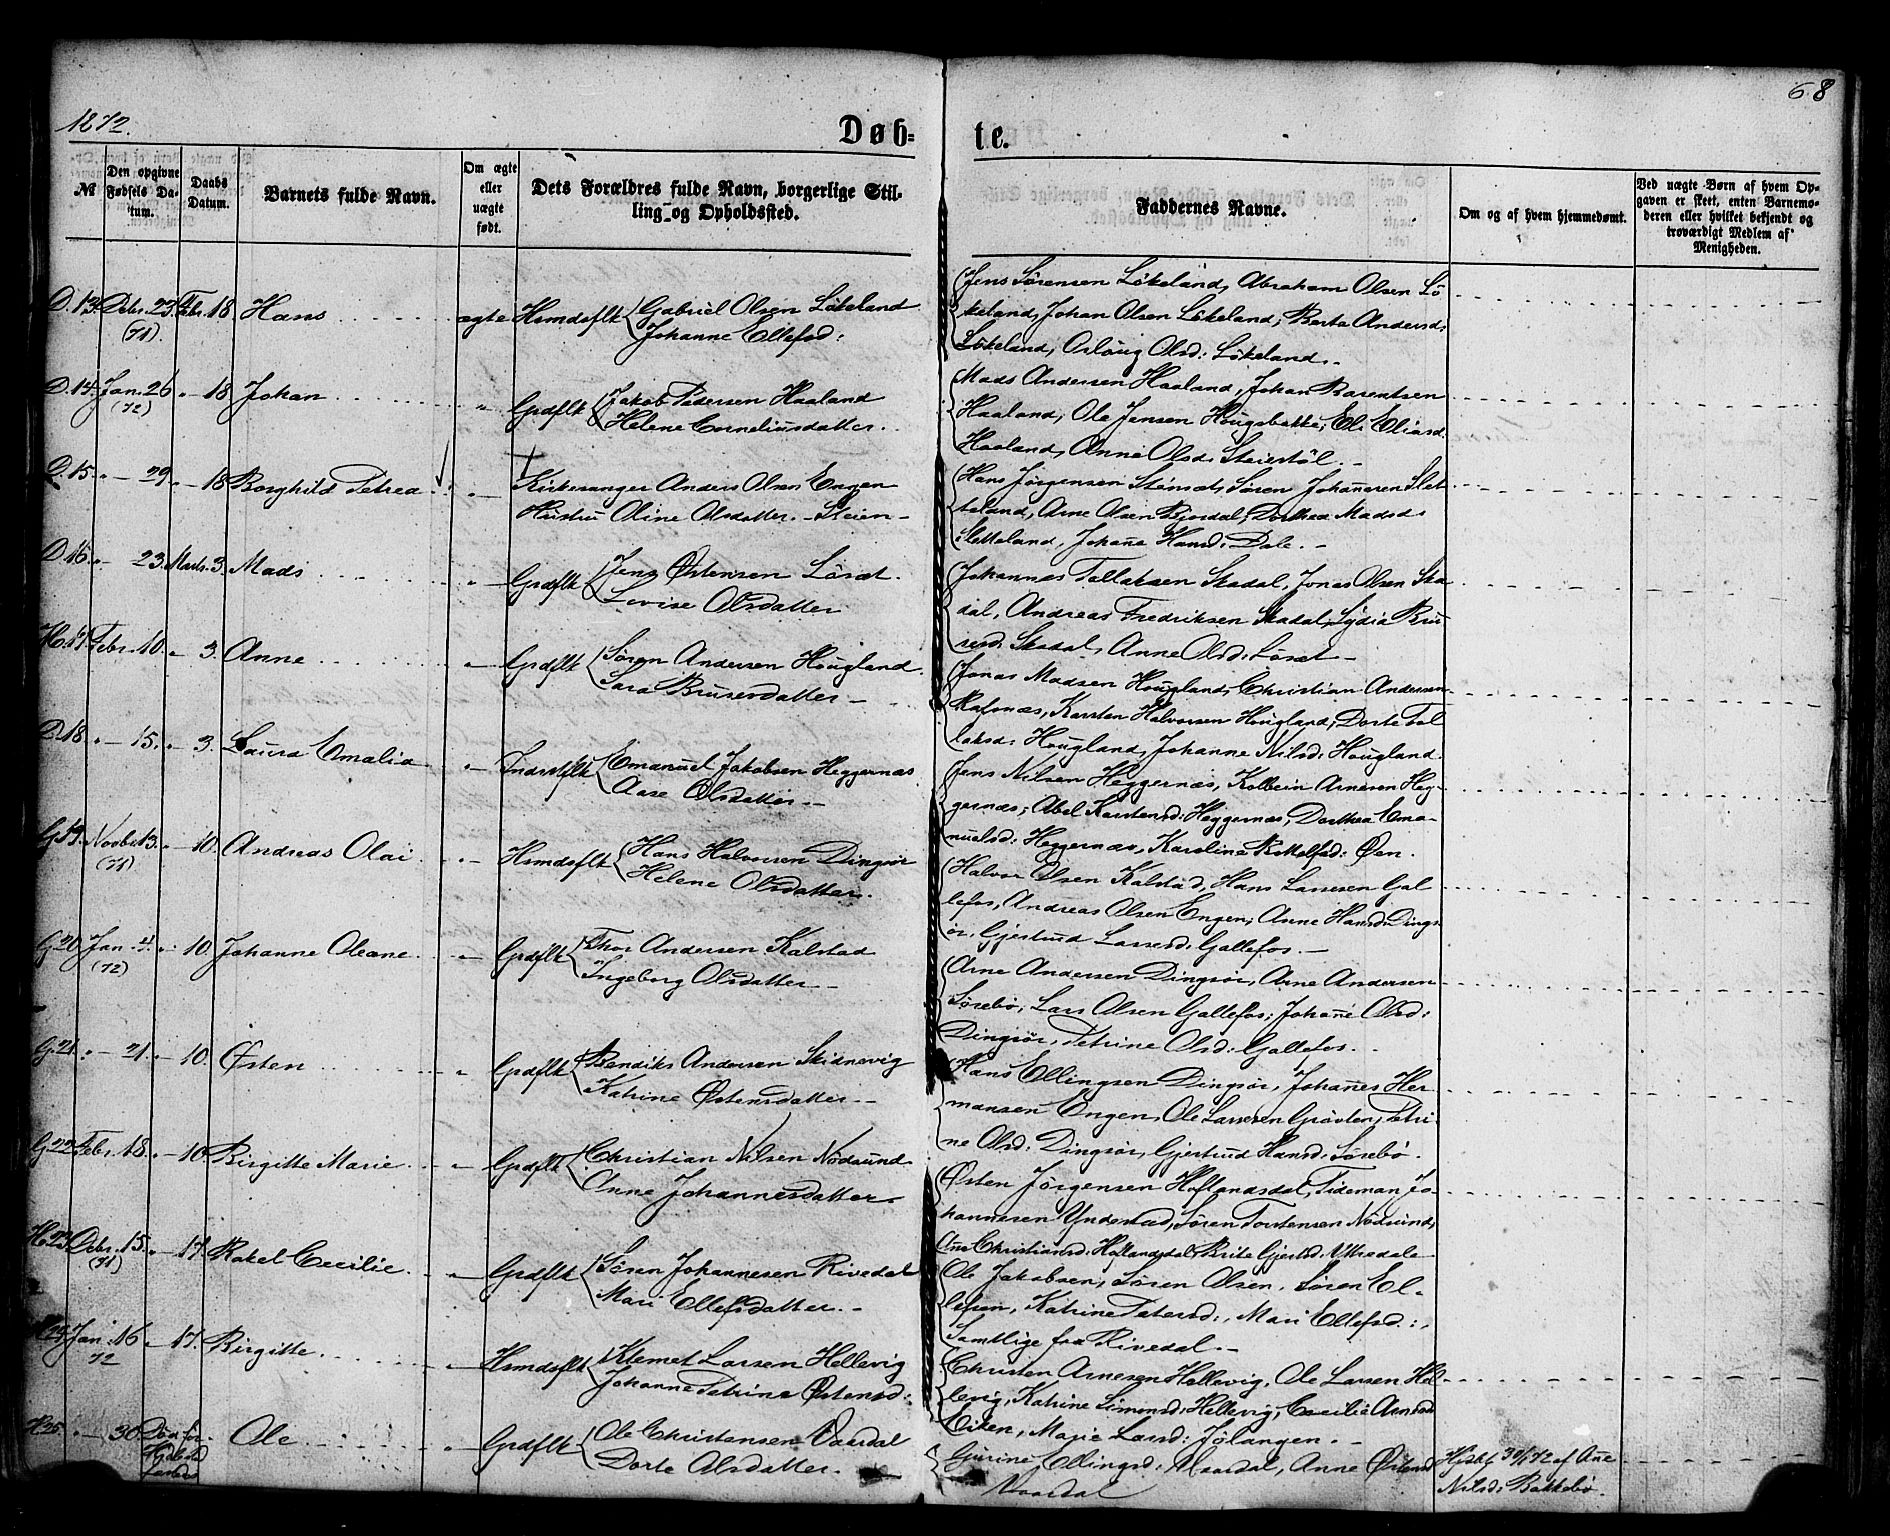 1872.
68
Døb-
te.
№
Den opgivne Fødsels Datum.
Daabs Datum.
Barnets fulde Navn.
Om ægte eller uægte født.
Dets Forældres fulde Navn, borgerlige Stilling og Opholdssted.
Faddernes Navne.
Om og af hvem hjemmedømt.
Ved uægte Børn af hvem Opgaven er skeet, enten Barnemoderen eller hvilket bekjendt og troværdigt Medlem af Menigheden.
D. 13. Debr. 23. (71). Febr. 18 Hans ægte Hsmdsflk Gabriel Olsen Løkeland
Johanne Ellefsd:
Jens Sørensen Løkeland, Abraham Olsen Lø
keland, Johan Olsen Løkeland, Berta Andersd:
Løkeland, Oslöug Olsd: Løkeland.
D. 14. Jan. 26 (72) " 18 Johan " Grdflk Jakob Pedersen Haaland
Helene Corneliusdatter.
Mads Andersen Haaland, Johan Barentsen
Haaland, Ole Jensen Hougsbakke, Eli Eliasd:
Haaland, Anne Olsd: Steiestøl.
D. 15. " 29. " 18 Borghild Petrea " Kirkesanger Anders Olsen Engen
Hustru Oline Olsdatter. - Steien -
Hans Jørgensen Stensæt, Søren Johanesen Slet
teland, Arne Olsen Bjordal, Dorthea Madsd:
Sletteland, Johane Hansd: Dale.
D. 16. " 23. Marts. 3. Mads " Grdflk Jens Østensen Løsæt.
Lovise Olsdatter
Johannes Tollaksen Skadal, Jonas Olsen Ska
dal, Andreas Fredriksen Skadal, Lydia Bru
sesd: Skadal, Anne Olsd: Løsæt
H. 17. Febr. 10. " 3. Anne " Grdflk Søren Andersen Hougland
Sara Brusesdatter
Jonas Madsen Hougland, Christian Andersen
Rafnæs, Karsten Halvorsen Hougland, Dorte Tol
laksd: Hougland, Johanne Nilsd: Hougland.
D. 18. " 15. " 3. Laura Emalia " Inderstflk Emanuel Jakobsen Heggernæs
Aase Olsdatter
Jens Nilsen Heggernæs, Kolbein Arnesen Heg-
gernæs, Abel Karstensd: Heggernæs, Dorthea Ema-
nuelsd: Heggernæs, Karoline Ketelsd: Øen.
G. 19. Novbr. 13. (71) " 10. Andreas Olai " Hsmdsflk Hans Halvorsen Dingsør
Helene Olsdatter.
Halvor Olsen Kalstad, Hans Larsen Gal
lefos, Andreas Olsen Engen, Anne Hansd: Dings
ør, Gjertrud Larsesd: Gallefos.
G. 20. Jan. 4. (72) " 10. Johanne Oleane " Grdflk Thor Andersen Kalstad
Ingeborg Olsdatter
Arne Andersen Dingsør, Arne Andersen
Sørebø, Lars Olsen Gallefos, Johane Olsd:
Dingsør, Petrine Olsd: Gallefos.
G. 21. " 21. " 10. Østen " Grdflk Bendiks Andersen Skidnevig
Katrine Østensdatter.
Hans Ellingsen Dingsør, Johanes Her
mansen Engen, Ole Larsesen Grøvlen, Petri
ne Olsd: Dingsør, Gjertrud Hansd: Sørebø.
G. 22. Febr. 18. " 10. Birgitte Marie " Grdflk Christian Nilsen Nødsund
Anne Johannesdatter
Østen Jørgensen Hoflandsdal, Tideman Jo-
hannesen Yndestad, Søren Torstensen Nødsund,
Ane Christiansd: Hoflandsdal, Brite Gjertsd: Yttredale
H. 23. Debr. 15. (71) " 17. Rakel Cecilie " Grdflk Søren Johannesen Rivedal
Mari Ellefsdatter.
Ole Jakobsen, Søren Olsen, Søren El-
lefsen, Katrine Petersd:, Mari Ellefsd:,
Samtlige fra Rivedal.
Jan. 16 72 " 17. Birgitte " Hsmdsflk Klemet Larsen Hellevig
Johanne Petrine Østensd:
Christen Arnesen Hellevig, Ole Larsen Hel
levig, Katrine Simonsd: Hellevig, Cecilie Arnesd:
Eiken, Marie Larsd: Jølangen.
H. 25. " 30. Død før Ole " Grdflk Ole Christensen Vaardal
Dorte Olsdatter.
Gjurine Ellingsd: Vaardal, Anne Østensd
Vaardal
Hjdbt 30/1 72 af Ane
Nilsd: Bakkebø.